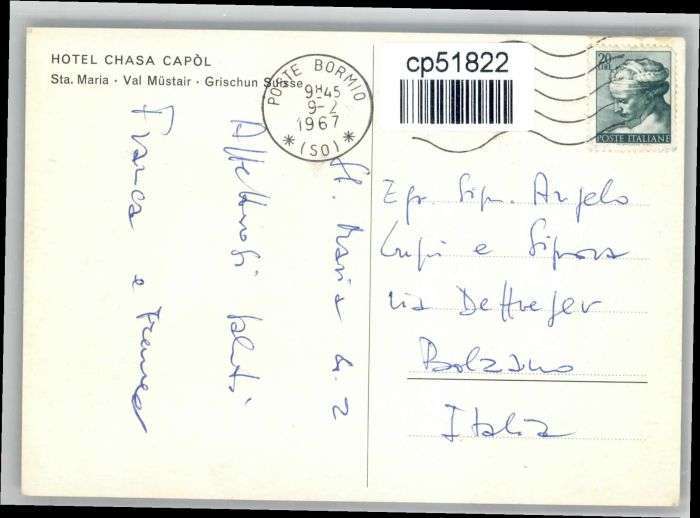 HOTEL CHASA CAPÒL
Sta. Maria · Val Müstair · Grischun Suisse
POSTE BORMIO
9H45
9-2
1967
* (SO) *
cp51822
20
POSTE ITALIANE
St. Maria 4.2
Affettuosi saluti
Franca e Franco
Egr. Sign. Angelo
Lupi e Signora
via
Bolzano
Italia